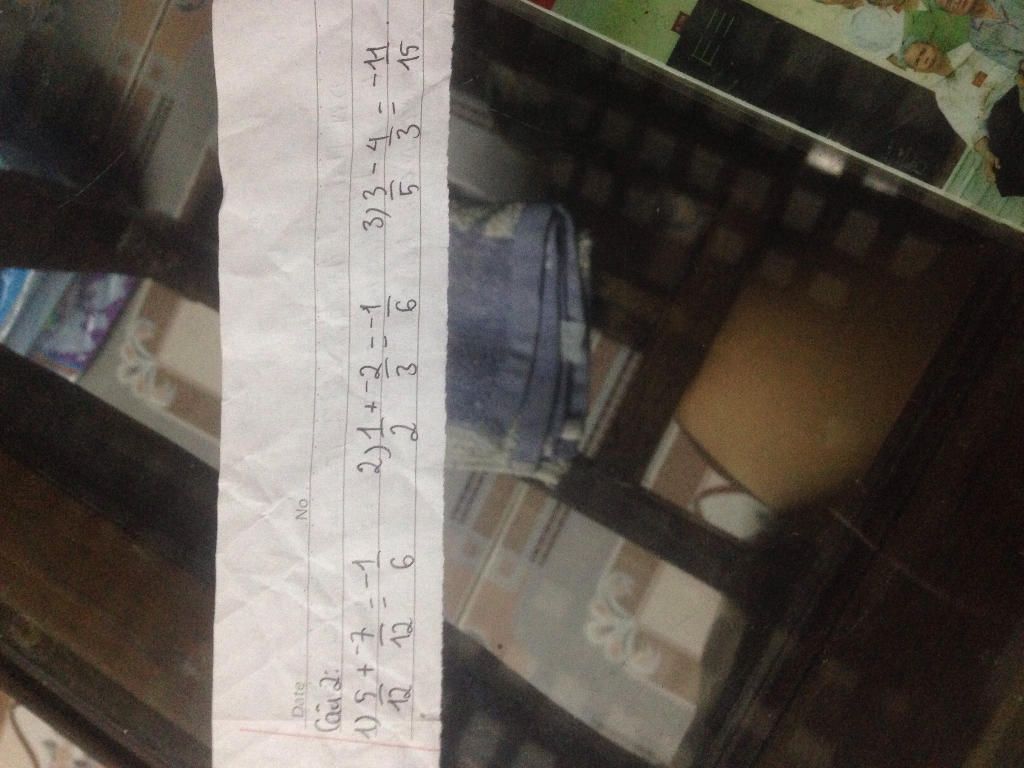 Date No
Câu 2:
1) 5/12 + -7/12 = -1/6 2) 1/2 + -2/3 = -1/6 3) 3/5 - 4/3 = -11/15